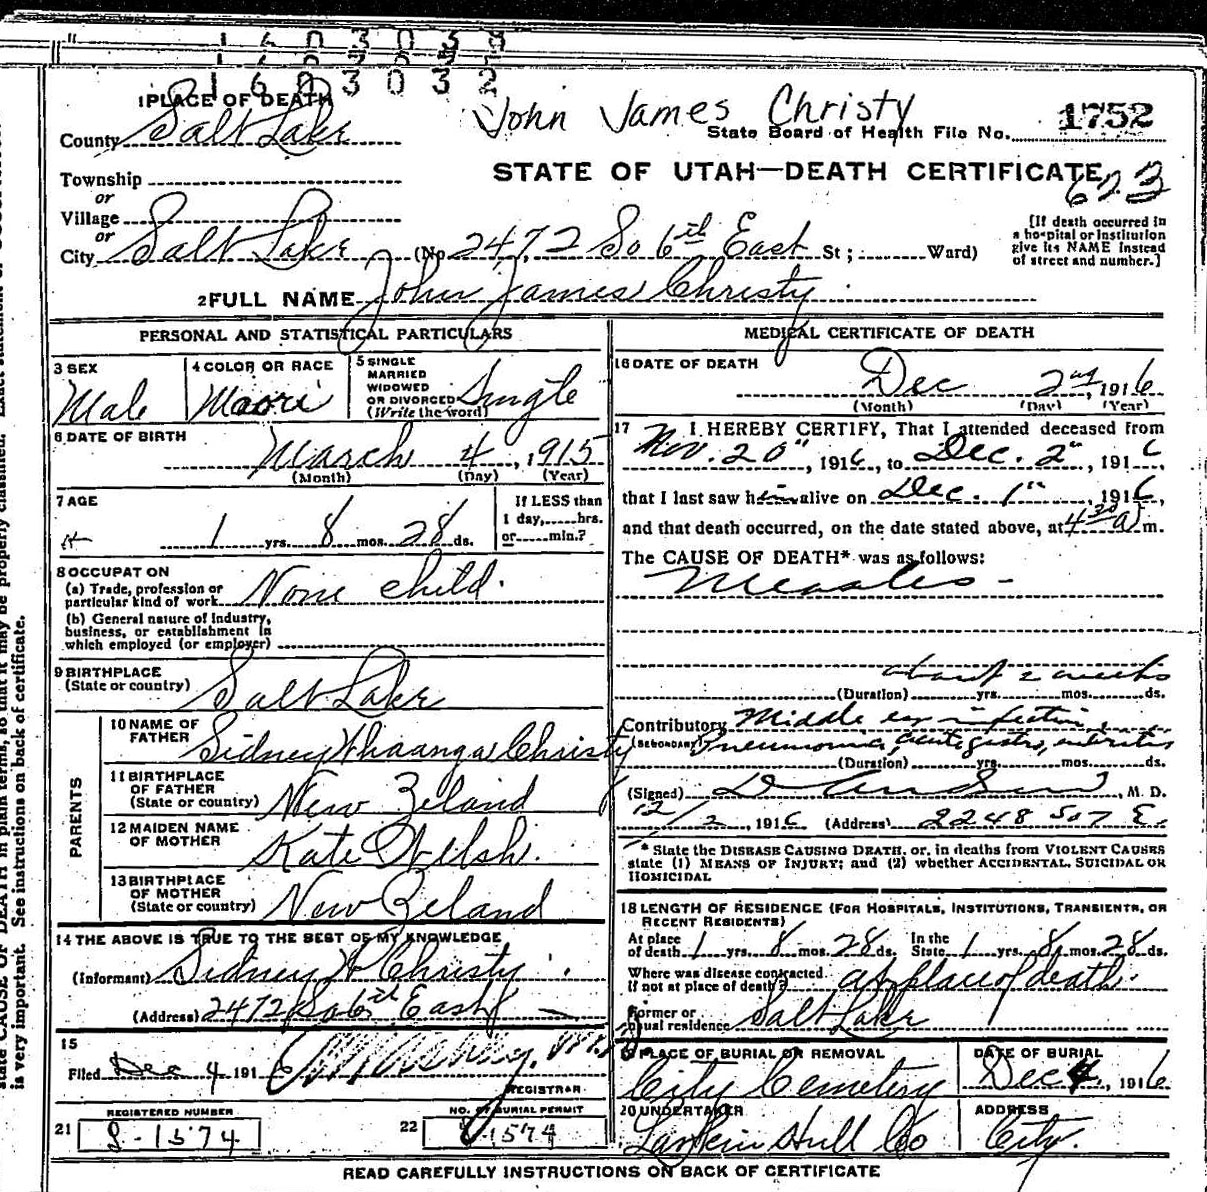 1603032
1 PLACE OF DEATH
John James Christy
County Salt Lake
State Board of Health File No. 1752
STATE OF UTAH—DEATH CERTIFICATE
Township
or
Village
or
City Salt Lake (No 2472 So 6th East St; Ward)
[If death occurred in
a hospital or institution
give its NAME instead
of street and number.]
2 FULL NAME John James Christy
PERSONAL AND STATISTICAL PARTICULARS
3 SEX
Male
4 COLOR OR RACE
Maori
5 SINGLE
MARRIED
WIDOWED
OR DIVORCED
(Write the word)
Single
6 DATE OF BIRTH
March 4, 1915
(Month) (Day) (Year)
7 AGE
1 yrs. 8 mos. 28 ds.
If LESS than
1 day, hrs.
or min.?
8 OCCUPATON
(a) Trade, profession or
particular kind of work None child.
(b) General nature of industry,
business, or establishment in
which employed (or employer)
9 BIRTHPLACE
(State or country) Salt Lake
PARENTS
10 NAME OF
FATHER
Sidney Whaanga Christy
11 BIRTHPLACE
OF FATHER
(State or country) New Zeland
12 MAIDEN NAME
OF MOTHER
Kate Welsh.
13 BIRTHPLACE
OF MOTHER
(State or country) New Zeland
14 THE ABOVE IS TRUE TO THE BEST OF MY KNOWLEDGE
(Informant) Sidney W Christy
(Address) 2472 So 6th East
15
Filed Dec 4 1916
REGISTRAR
REGISTERED NUMBER
21 S-1574
NO. OF BURIAL PERMIT
22 1574
MEDICAL CERTIFICATE OF DEATH
16 DATE OF DEATH
Dec 2nd, 1916
(Month) (Day) (Year)
17 I HEREBY CERTIFY, That I attended deceased from
Nov. 20", 1916, to Dec. 2", 1916,
that I last saw him alive on Dec. 1", 1916,
and that death occurred, on the date stated above, at 4 30 a m.
The CAUSE OF DEATH* was as follows:
Measles -
about 2 weeks
(Duration) yrs. mos. ds.
Contributory Middle ear infection,
(SECONDARY) Pneumonia, acute gastro, enteritis
(Duration) yrs. mos. ds.
(Signed) M. D.
12/2, 1916 (Address) 2248 So 7 E.
* State the DISEASE CAUSING DEATH, or, in deaths from VIOLENT CAUSES
state (1) MEANS OF INJURY; and (2) whether ACCIDENTAL, SUICIDAL OR
HOMICIDAL
18 LENGTH OF RESIDENCE (FOR HOSPITALS, INSTITUTIONS, TRANSIENTS, OR
RECENT RESIDENTS)
At place
of death 1 yrs. 8 mos. 28 ds. In the
State 1 yrs. 8 mos. 28 ds.
Where was disease contracted
If not at place of death? at place of death.
Former or
usual residence Salt Lake
19 PLACE OF BURIAL OR REMOVAL
City Cemetery
DATE OF BURIAL
Dec 4, 1916
20 UNDERTAKER
Larkin Hull Co
ADDRESS
City.
READ CAREFULLY INSTRUCTIONS ON BACK OF CERTIFICATE
is very important. See instructions on back of certificate.